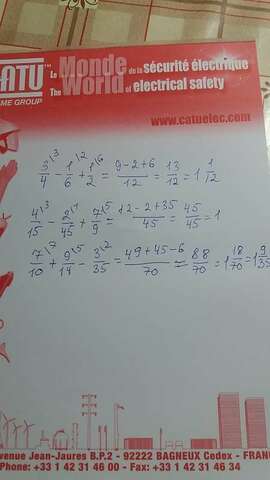 CATU™
ME GROUP
Le Monde de la sécurité électrique
The World of electrical safety
www.catuelec.com
3\3/4 - 1\2/6 + 1\6/2 = 9-2+6/12 = 13/12 = 1 1/12
4\3/15 - 2\1/45 + 7\5/9 = 12-2+35/45 = 45/45 = 1
7\7/10 + 9\5/14 - 3\2/35 = 49+45-6/70 = 88/70 = 1 18/70 = 1 9/35
venue Jean-Jaures B.P.2 - 92222 BAGNEUX Cedex - FRANC
Phone: +33 1 42 31 46 00 - Fax: +33 1 42 31 46 34